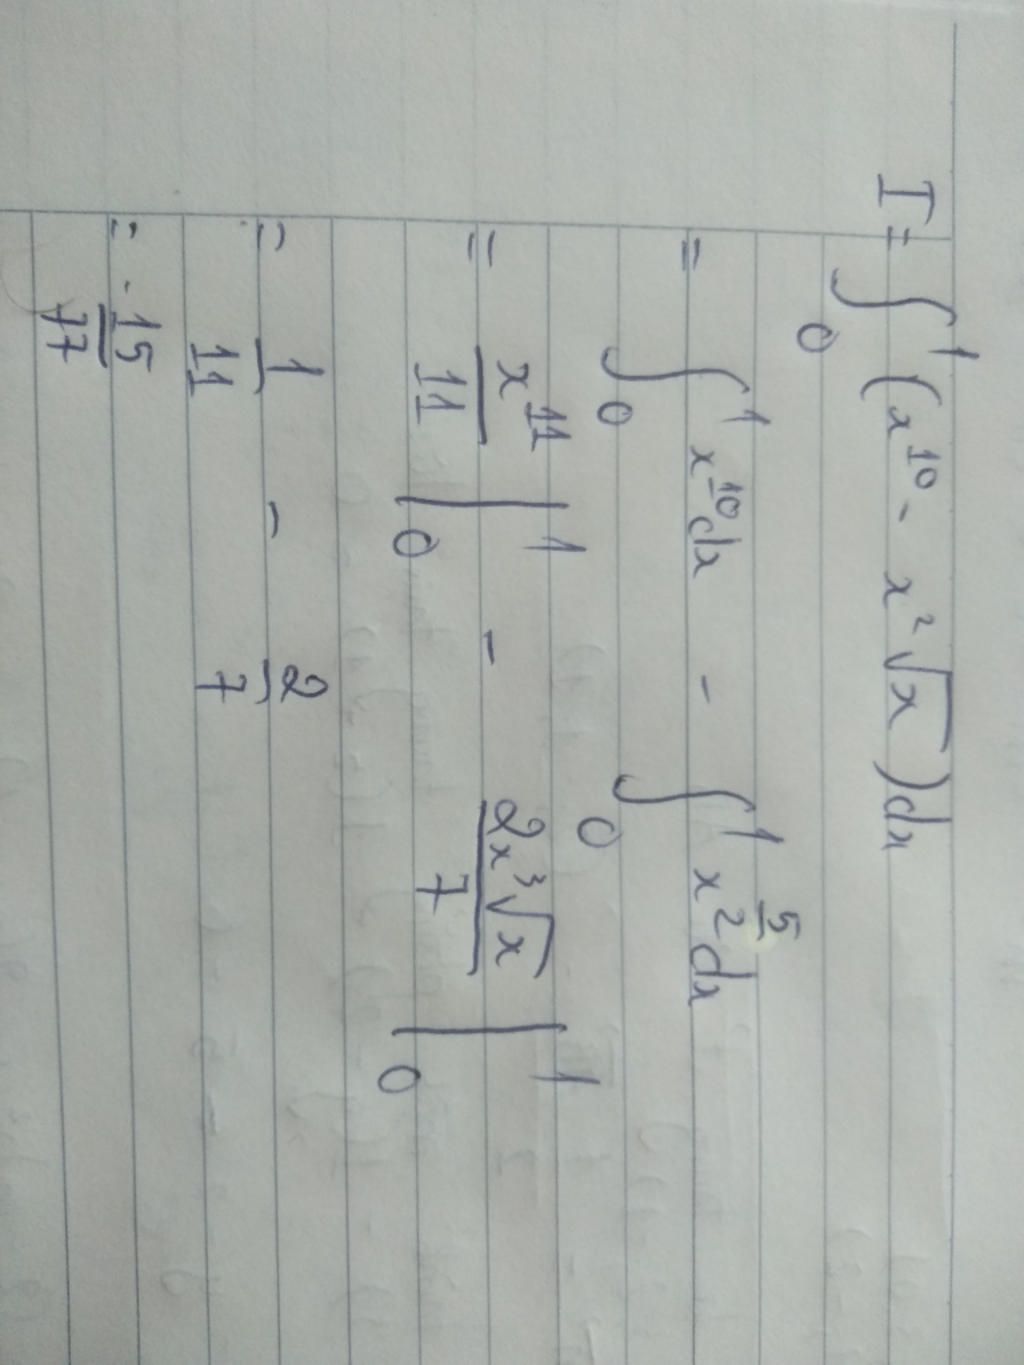 I = ∫₀¹ (x¹⁰ - x²√x) dx
= ∫₀¹ x¹⁰ dx - ∫₀¹ x^(5/2) dx
= x¹¹/11 |₀¹ - 2x³√x/7 |₀¹
= 1/11 - 2/7
= -15/77